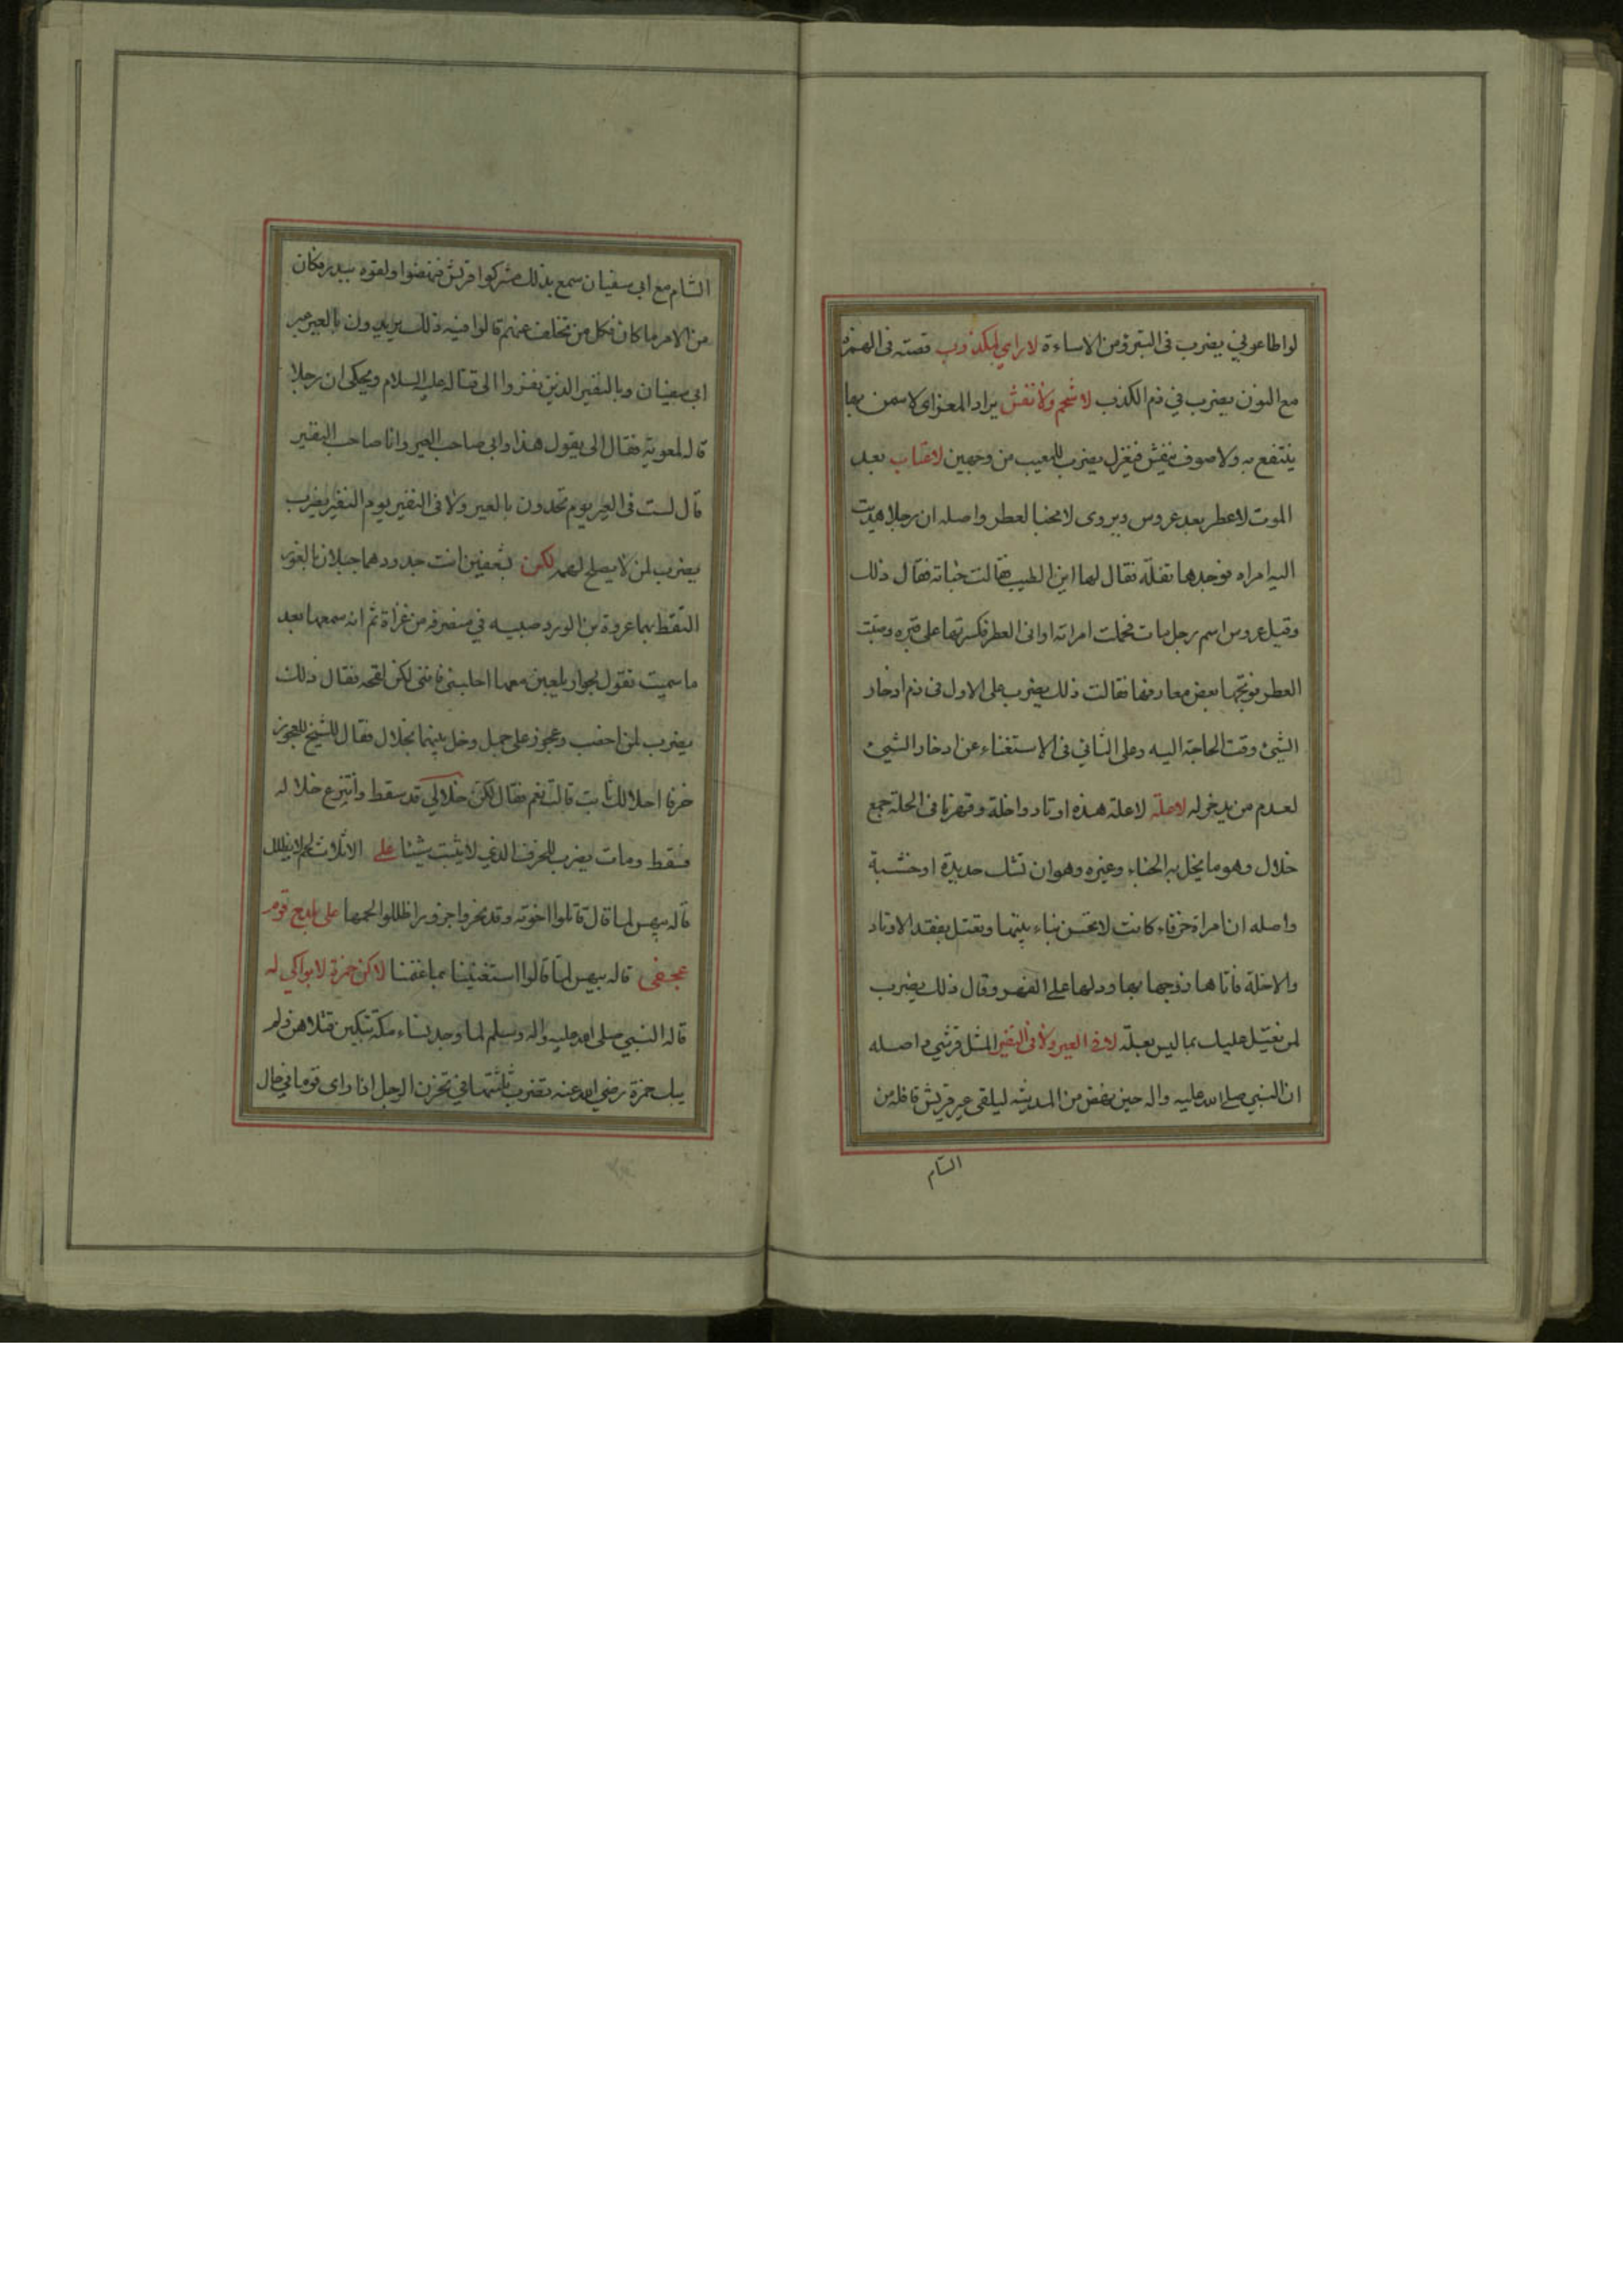 لو اطاعوني يضرب فى التبرؤ من الاساءة لا راي لمكذوب قصته فى الهمزة
مع النون يضرب في ذم الكذب لا شحم ولا نفش يراد المعز اى لا سمن بها
ينتفع به ولا صوف ينفش فيغزل يضرب للمعيب من وجهين لا عتاب بعد
الموت لا عطر بعد عروس ويروى لا مخبا لعطر واصله ان رجلا هديت
اليه امراه فوجدها تفلة فقال لها اين الطيب فقالت خباته فقال ذلك
وقيل عروس اسم رجل مات فحملت امراته اوانى العطر فكسرتها على قبره وصبت
العطر فوبخها بعض معارفها فقالت ذلك يضرب على الاول فى ذم ادخار
الشئ وقت الحاجة اليه وعلى الثاني فى الاستغناء عن ادخار الشئ
لعدم من يدخر له لا علة لا علة هذه اوتاد واخلة وفهرنا فى الخلة جمع
خلال وهو ما يخل به الخباء وغيره وهو ان تشك حديدة او خشبة
واصله ان امراة خرقاء كانت لا تحسن بناء بيتها وتعتل بفقد الاوتاد
والاخلة فاتاها زوجها بها ودلها على الفهر وقال ذلك يضرب
لمن يعتل عليك بما ليس بعلة لا فى العير ولا فى النفير المثل قرشي واصله
ان النبي صلى الله عليه واله حين نهض من المدينة ليلقى عير قريش قافلة من
الشام
الشام مع ابى سفيان سمع بذلك مشركوا قريش فنهضوا ولقوه ببدر فكان
من الامر ما كان فكل من تخلف عنهم قالوا فيه ذلك يريدون بالعير عير
ابى سفيان وبالنفير الذين نفروا الى قتاله عليه السلام ويحكى ان رجلا
قال لمعوية فقال الى يقول هذا وابى صاحب العير وانا صاحب النفير
قال لست فى العير يوم تحدون بالعير ولا فى النفير يوم النفير يضرب
يضرب لمن لا يصلح لمهم لكن بشعفين انت جدود هما جبلان بالغور
التقط بها عروة بن الورد صبيه في منصرفه من غزاة ثم انه سمعها بعد
ما سمنت تقول لجوار يلعبن معها احلبنى فاننى لكن لقحه فقال ذلك
يضرب لمن اخصب وعجوز على جمل وخل بينهما بخلال فقال الشيخ للعجوز
خرفا اخلالك ثابت قالت نعم فقال لكن خلالى قد سقط وانتزع خلاله
فسقط ومات يضرب للخرف الذي لا يثبت شيئا على الاثلاث لحم لا يظلل
قاله بيهس لما قال قاتلوا اخوته وقد نحروا جزورا ظللوا لحمها على بلدح قوم
عجفى قاله بيهس لما قالوا استغنينا بما غنمنا لاكن حمزة لا بواكي له
قاله النبي صلى الله عليه واله وسلم لما وجد نساء مكة تبكين قتلاهن ولم
يبك حمزة رضي الله عنه تضرب ثلثتها في تحزن الرجل اذا راى قوما في حال